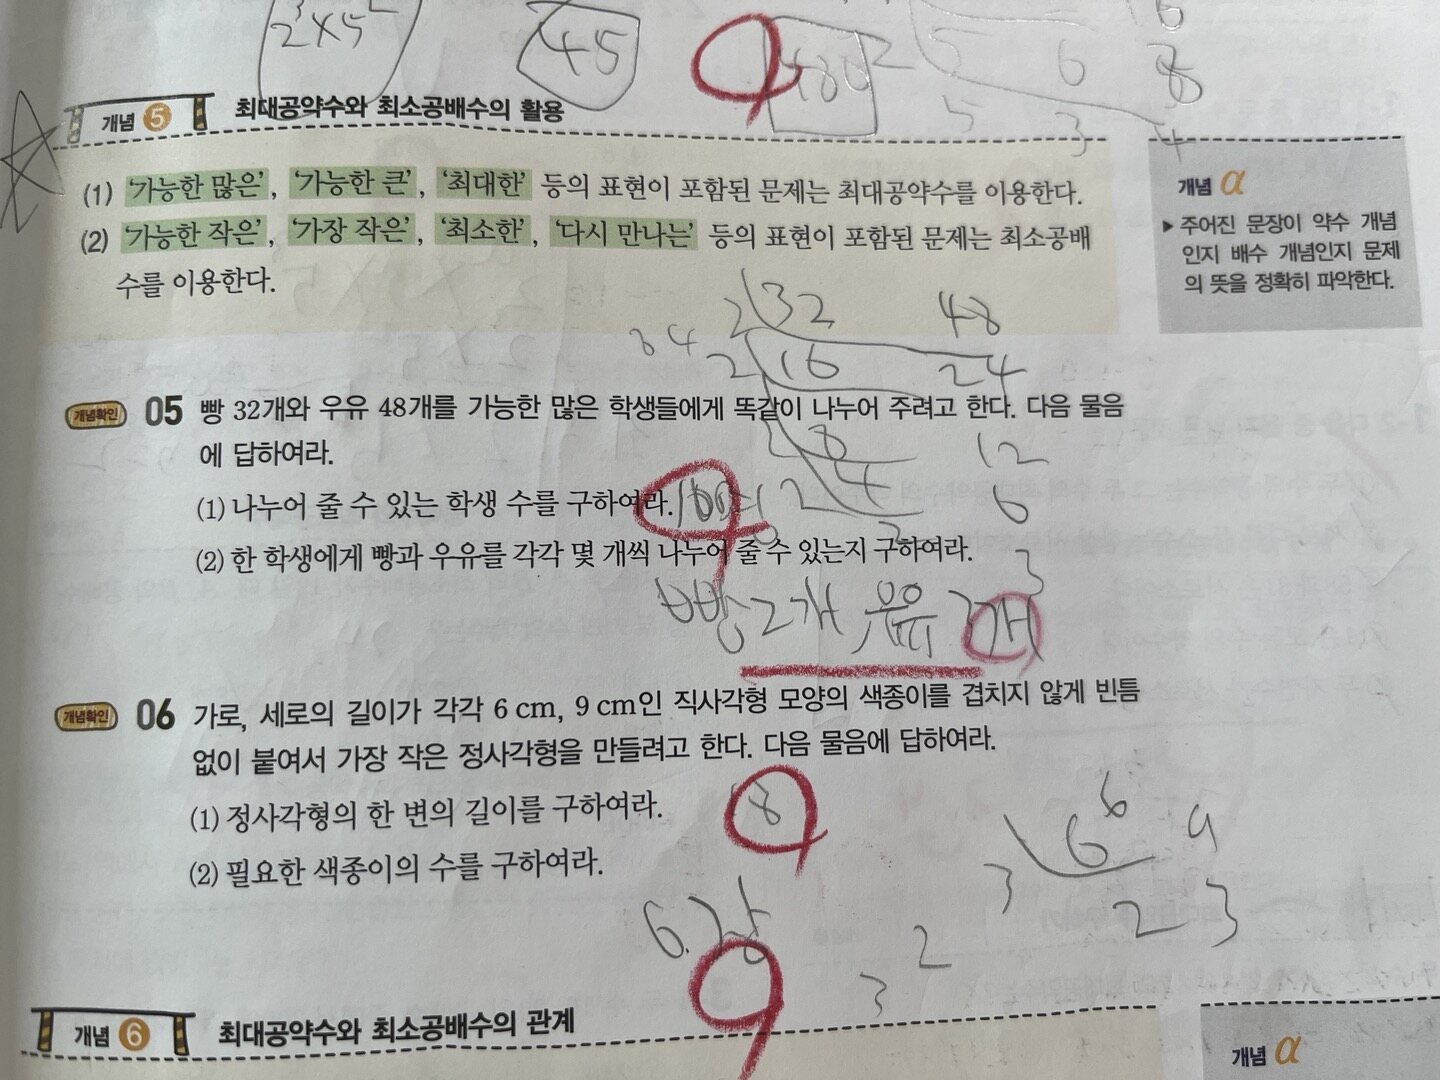 2³×5²
45
480
2
5 6 8
5 3 4
개념 5 최대공약수와 최소공배수의 활용
(1) '가능한 많은', '가능한 큰', '최대한' 등의 표현이 포함된 문제는 최대공약수를 이용한다.
(2) '가능한 작은', '가장 작은', '최소한', '다시 만나는' 등의 표현이 포함된 문제는 최소공배
수를 이용한다.
개념 α
▶ 주어진 문장이 약수 개념
인지 배수 개념인지 문제
의 뜻을 정확히 파악한다.
2 32 48
2 16 24
개념확인 05 빵 32개와 우유 48개를 가능한 많은 학생들에게 똑같이 나누어 주려고 한다. 다음 물음
에 답하여라.
2 8 12
(1) 나누어 줄 수 있는 학생 수를 구하여라. 16명
2 4 6
2 3
(2) 한 학생에게 빵과 우유를 각각 몇 개씩 나누어 줄 수 있는지 구하여라.
빵 2개 우유 3개
개념확인 06 가로, 세로의 길이가 각각 6 cm, 9 cm인 직사각형 모양의 색종이를 겹치지 않게 빈틈
없이 붙여서 가장 작은 정사각형을 만들려고 한다. 다음 물음에 답하여라.
(1) 정사각형의 한 변의 길이를 구하여라. 18
(2) 필요한 색종이의 수를 구하여라.
6
3 6 9
2 3
6장
3 2
개념 6 최대공약수와 최소공배수의 관계
개념 α